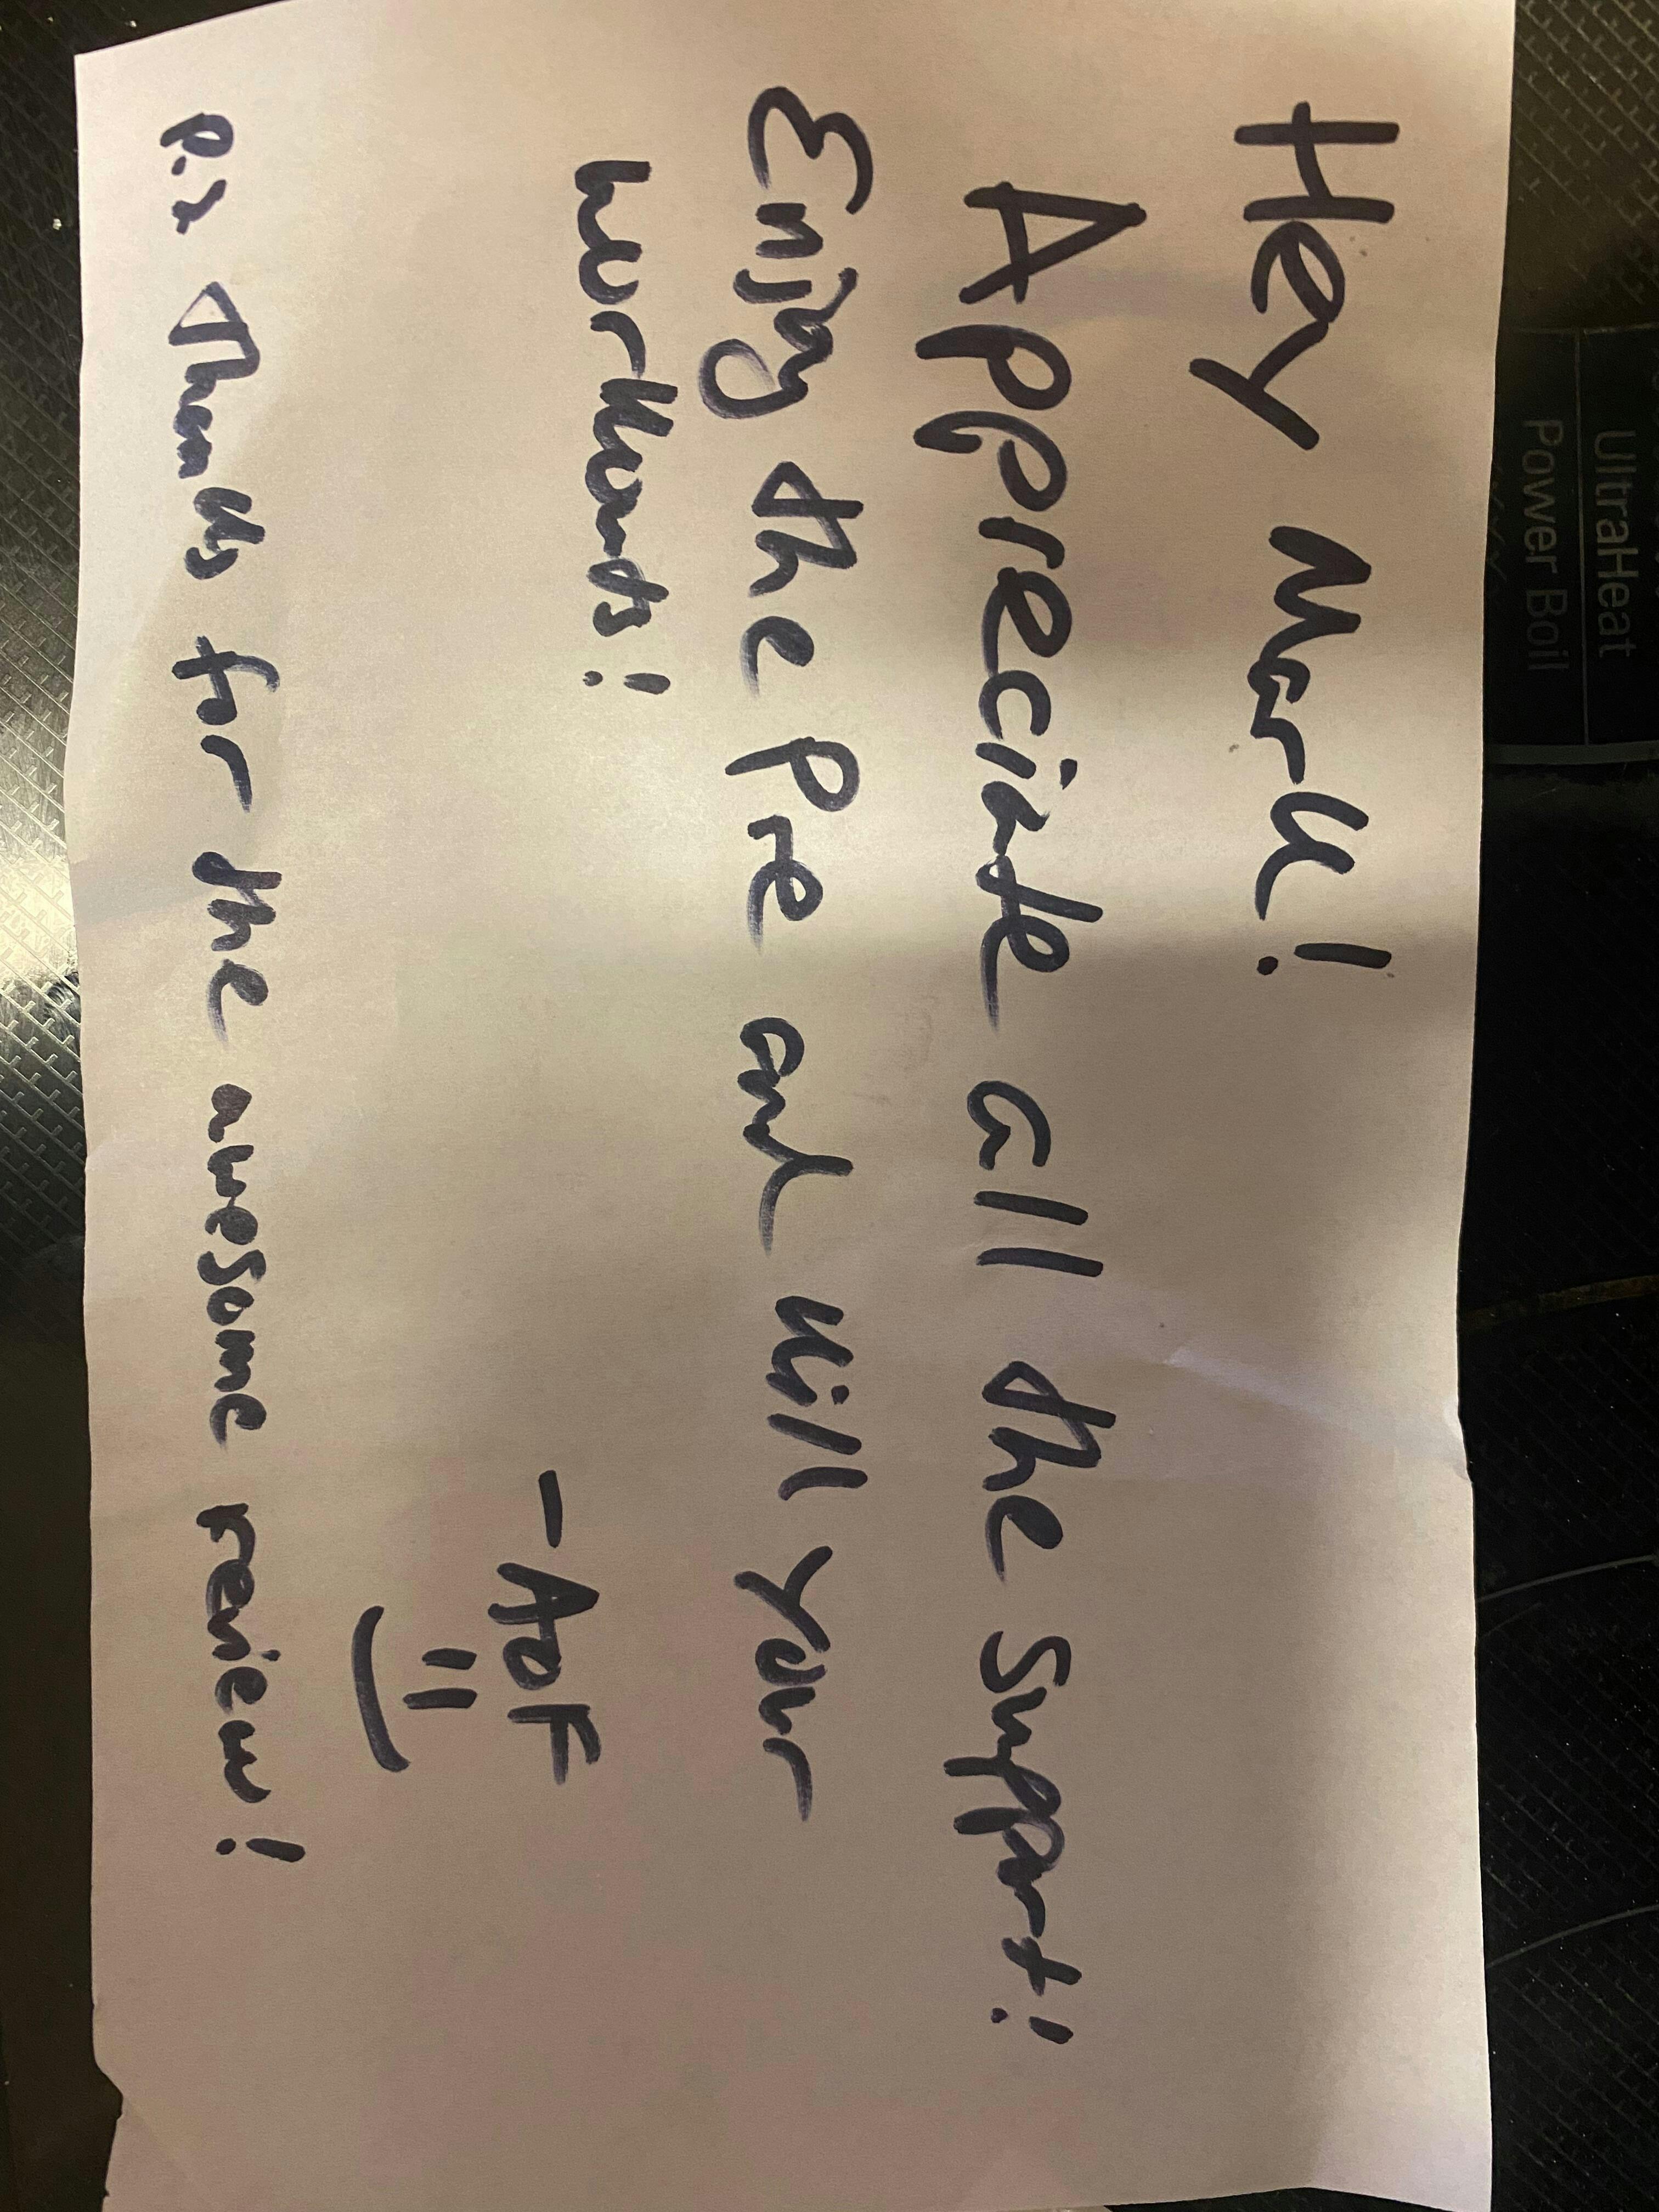 Hey Mark!
Appreciate all the support!
Enjoy the Pre and kill your
workouts!
-AOF
P.S Thanks for the awesome review!
UltraHeat
Power Boil